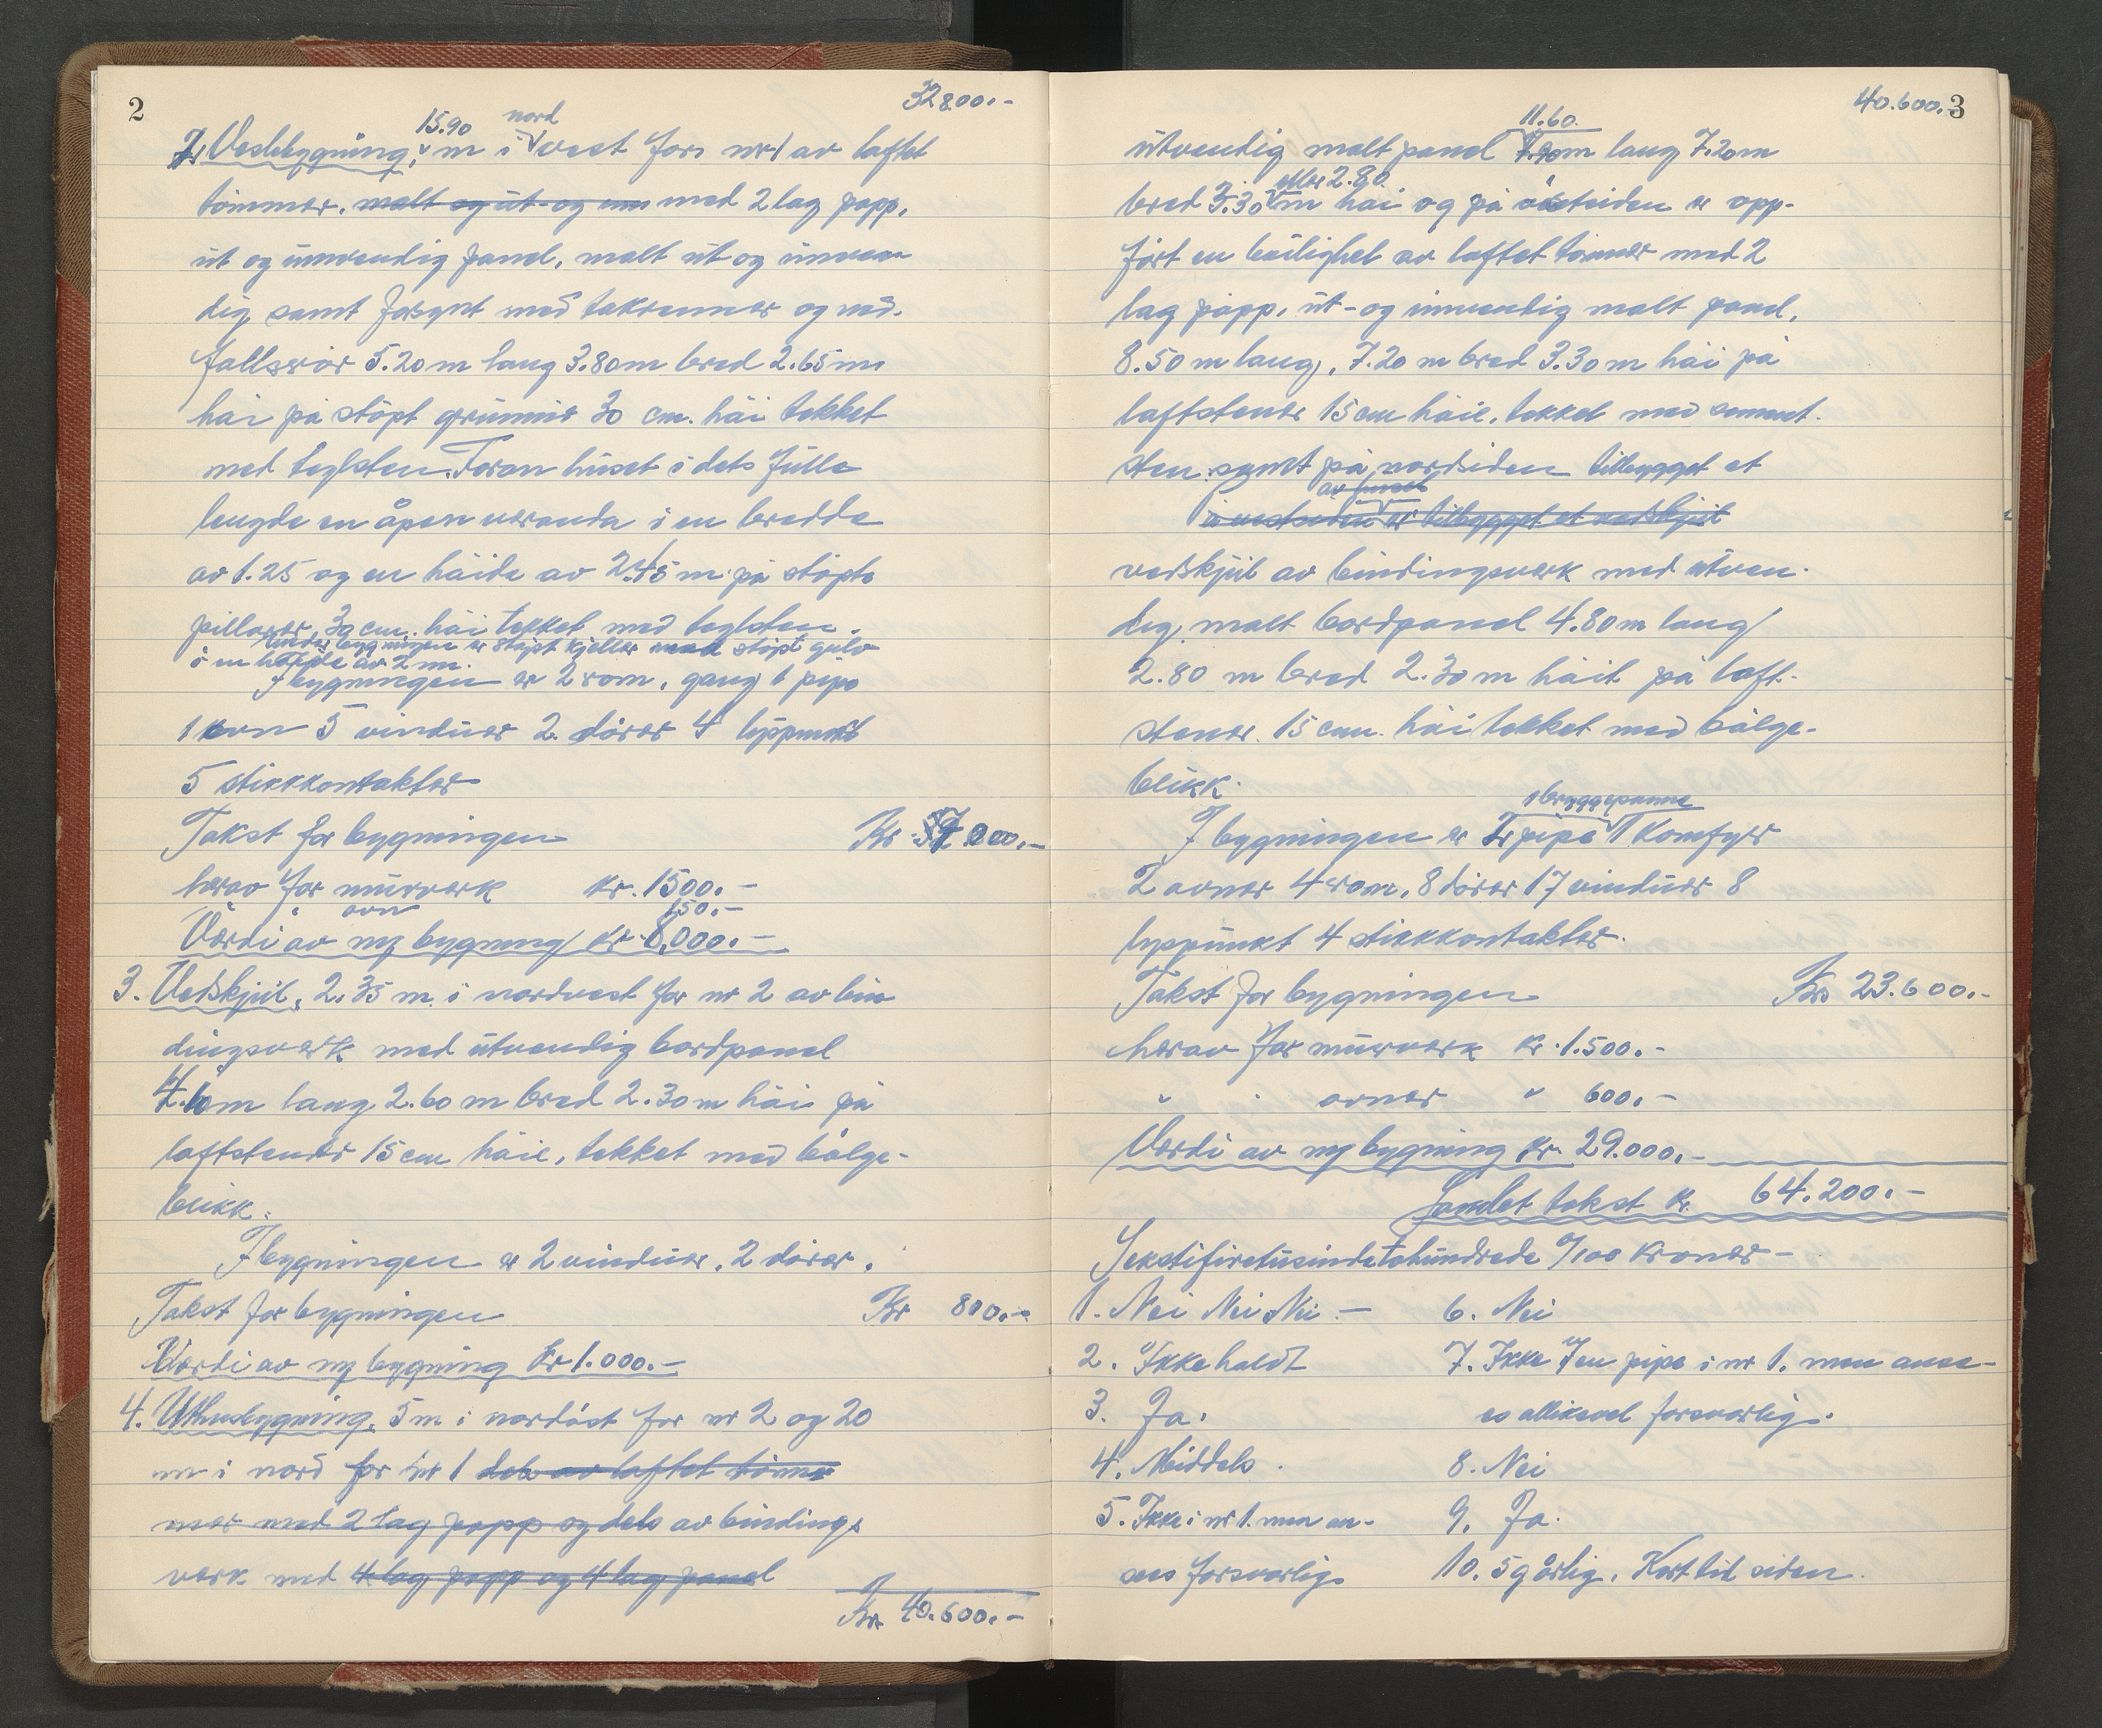 2
32800.-
15.90 nord
2. Vestbygning, m i vest for nr 1 av laftet
tømmer. malt og ut- og inn med 2 lag papp,
ut og innvendig panel, malt ut og innven-
dig samt forsynt med takrenner og ned-
fallsrör 5.20 m lang 3.80 m bred 2.65 m
håi på støpt grunnmur 30 cm. håi tekket
med teglsten. Foran huset i dets fulle
lengde en åpen veranda i en bredde
av 1.25 og en håide av 2.45 m på støpte
pillarer 30 cm. håi tekket med teglsten.
Under bygningen er støpt kjeller med støpt gulv
i en håide av 2 m.
I bygningen er 2 rom, gang 1 pipe
1 ovn 5 vinduer 2 dører 4 lyspunkt
5 stikkkontakter
Takst for bygningen Kr. 7000.-
herav for murverk kr. 1500.-
" " ovn 150.-
Verdi av ny bygning kr. 8,000.-
3. Vedskjul, 2.35 m i nordvest for nr 2 av bin
dingsverk med utvendig bordpanel
4.10m lang 2.60 m bred 2.30 m håi på
laftstener 15 cm håie, tekket med bølge-
blikk.
I bygningen er 2 vinduer, 2 dører.
Takst for bygningen Kr 800.-
Verdi av ny bygning Kr 1.000.-
4. Uthusbygning, 5 m i nordøst for nr 2 og 20
m i nord for nr 1 dels av laftet tømm
mer med 2 lag papp og dels av bindings
verk med 4 lag papp og 4 lag panel
Kr. 40.600.-
40.600.- 3
11.60
utvendig malt panel 7.90m lang 7.20m
eller 2.80
bred 3.30 m håi og på østsiden er opp-
ført en beilighet av laftet tømmer med 2
lag papp, ut- og innvendig malt panel,
8.50 m lang, 7.20 m bred 3.30 m håi på
laftstener 15 cm håie, tekket med sement-
sten samt på nordsiden tilbygget et
av huset
på vestsiden er tilbygget et vedskjul
vedskjul av bindingsverk med utven-
dig malt bordpanel 4.80 m lang
2.80 m bred 2.30 m håit på laft-
stener 15 cm. håi tekket med bølge-
blikk.
1 bryggepanne
I bygningen er pipe 1 komfyr
2 ovner 4 rom, 8 dører 17 vinduer 8
lyspunkt 4 stikkkontakter.
Takst for bygningen Kr 23.600.-
herav for murverk kr. 1.500.-
" " ovner " 600.-
Verdi av ny bygning kr. 29.000.-
Samlet takst kr. 64.200.-
Sekstifiretusindetohundrede 0/100 kroner-
1. Nei Nei Nei -
2. Ikke holdt
3. Ja.
4. Middels.
5. Ikke i nr 1. men an-
ses forsvarlig
6. Nei
7. Ikke en pipe i nr 1. men anse-
es allikevel forsvarlig.
8. Nei
9. Ja.
10. 5 g årlig. Kort tid siden.